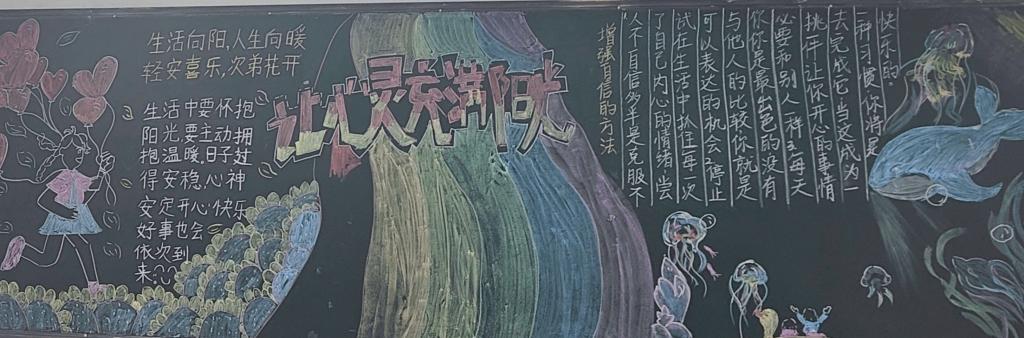 生活向阳,人生向暖
轻安喜乐,次第花开
生活中要怀抱
阳光要主动拥
抱温暖.日子过
得安稳.心神
安定开心快乐
好事也会
依次到
来
让心灵充满阳光
增强自信的方法
人不自信多半是克服不
了自己内心的情绪.尝
试在生活中抓住每一次
可以表达的机会.停止
与他人的比较你就是
你你是最出色的没有
必要和别人一样.每天
挑件让你开心的事情
去完成它当这成为一
种习惯你将是
快乐的.